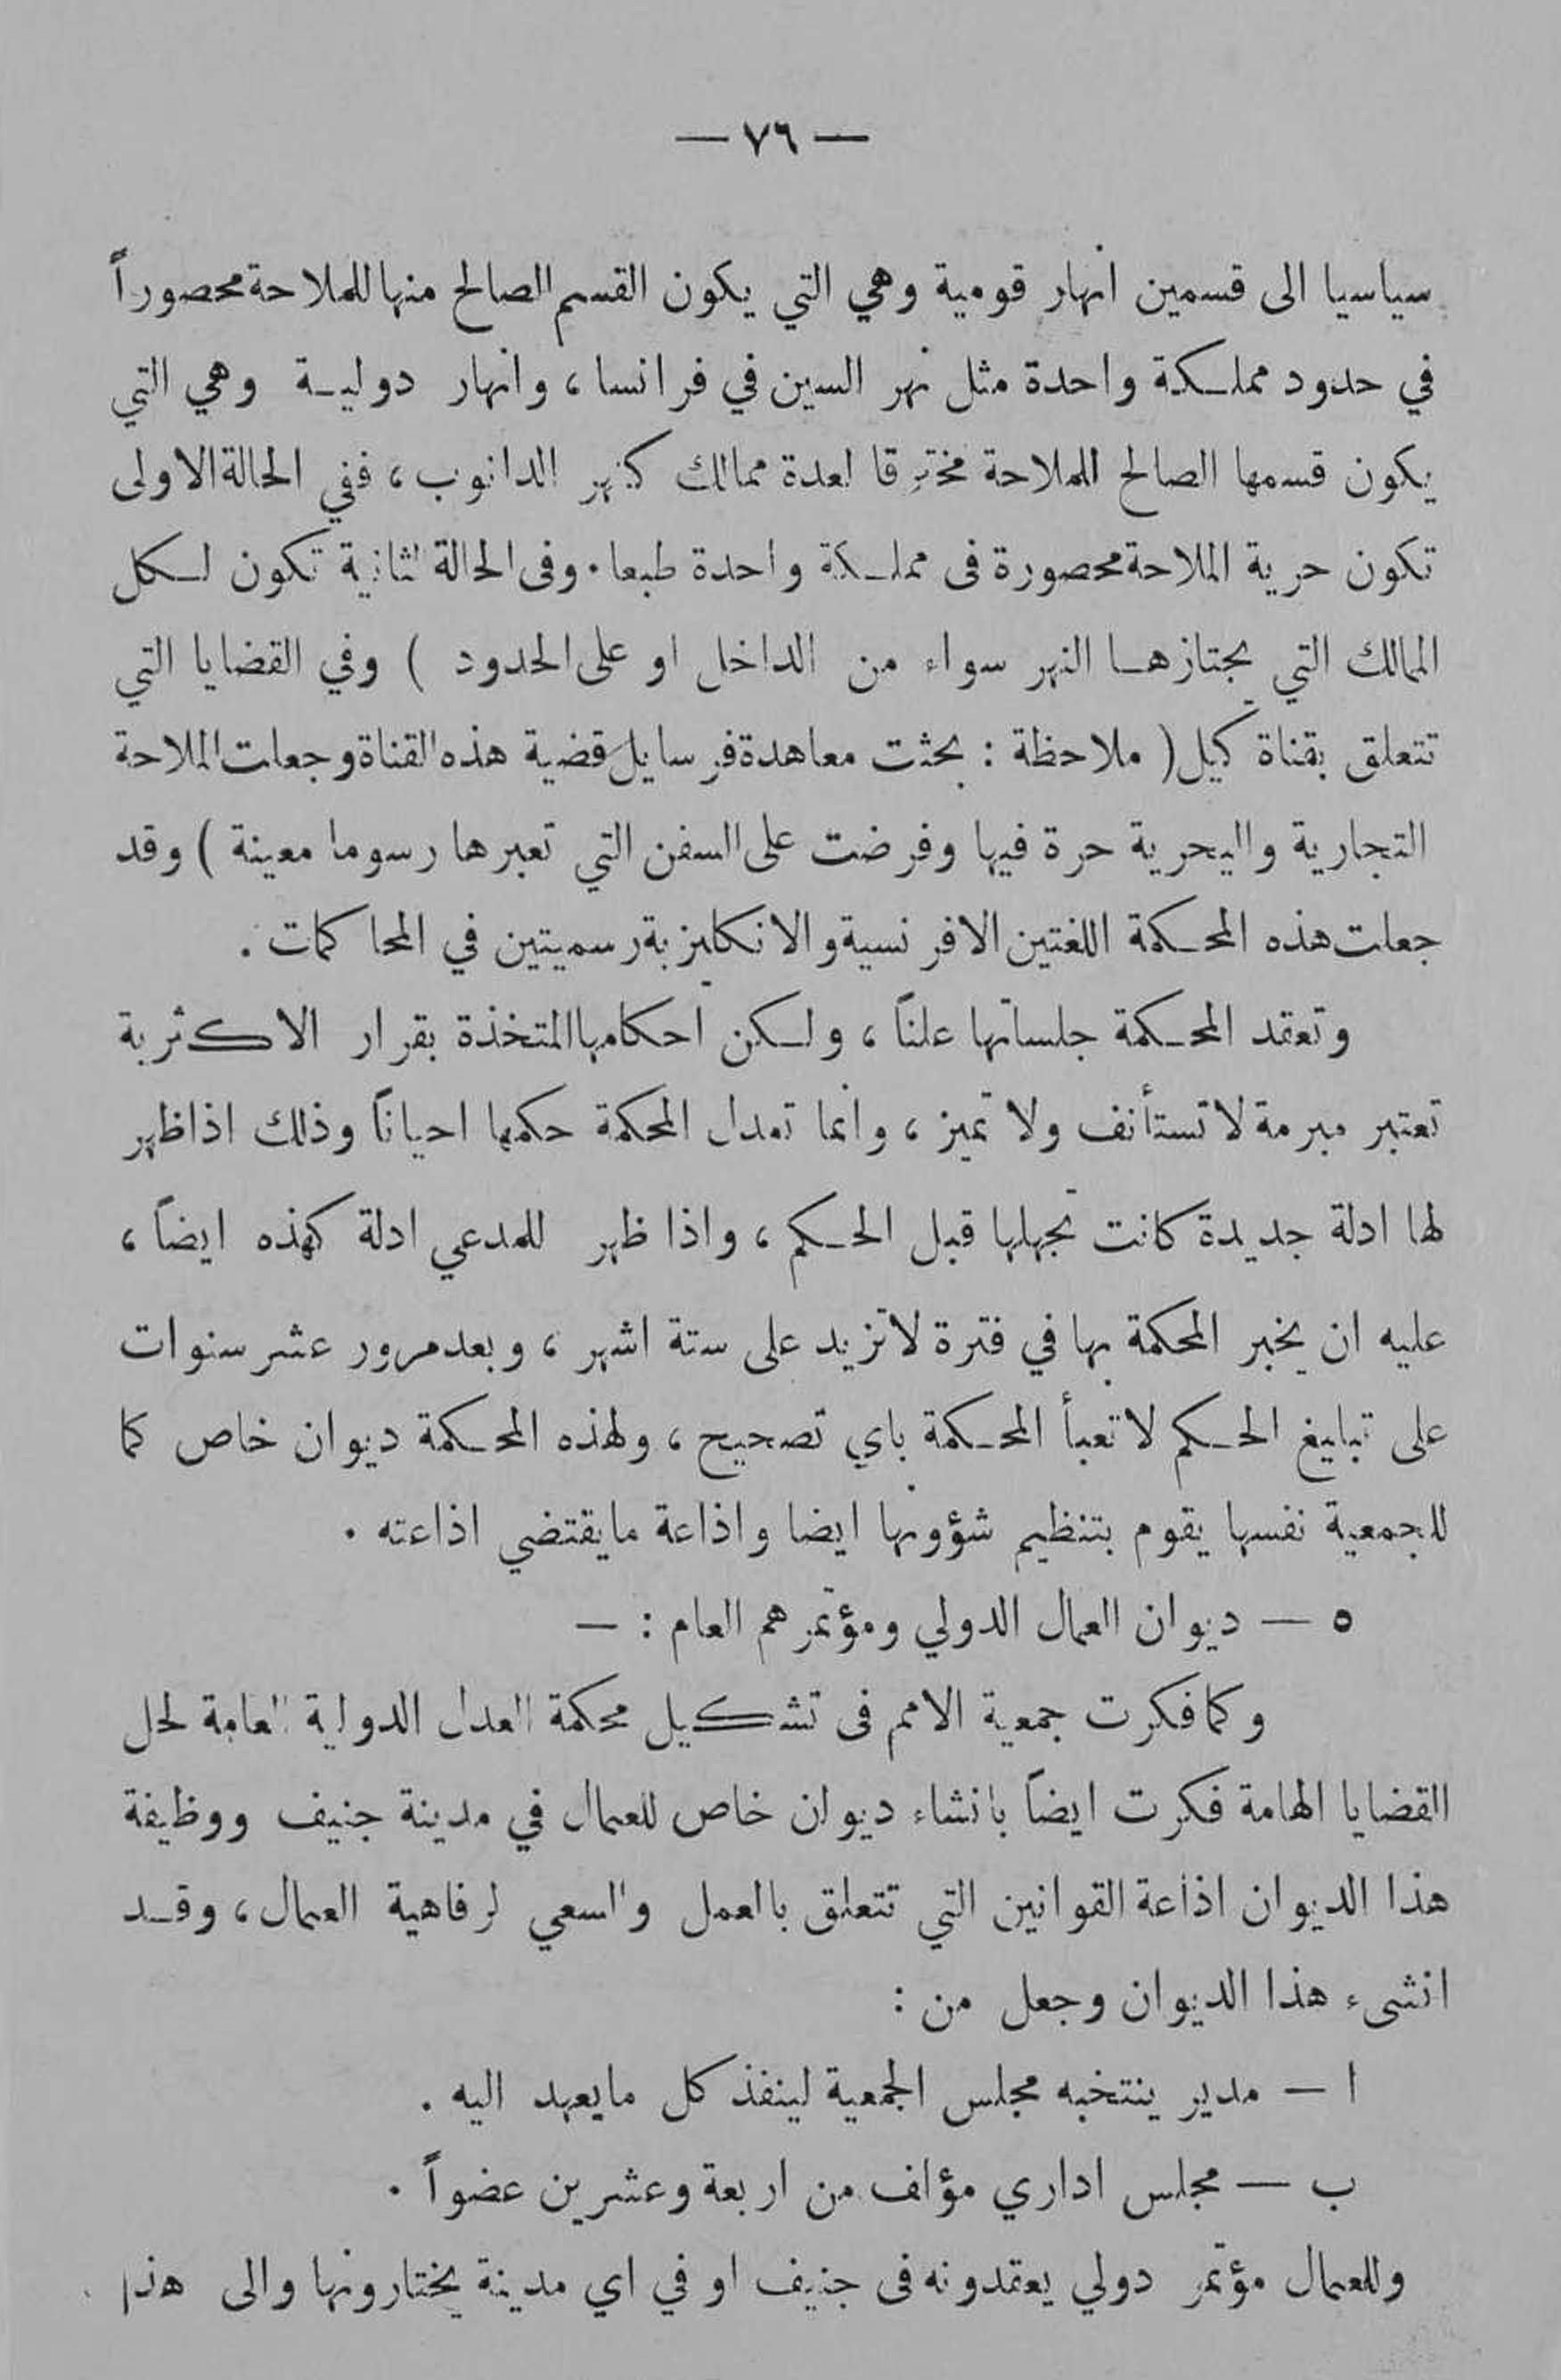 — ٧٦ —
سياسيا الى قسمين انهار قومية وهي التي يكون القسم الصالح منها للملاحة محصوراً
في حدود مملكة واحدة مثل نهر السين في فرانسا ، وانهار دولية وهي التي
يكون قسمها الصالح للملاحة مخترقا لعدة ممالك كنهر الدانوب ، ففي الحالة الاولى
تكون حرية الملاحة محصورة فى مملكة واحدة طبعا . وفى الحالة الثانية تكون لكل
الممالك التي يجتازها النهر سواء من الداخل او على الحدود ) وفي القضايا التي
تتعلق بقناة كيل ( ملاحظة : بحثت معاهدة فرسايل قضية هذه القناة وجعلت الملاحة
التجارية والبحرية حرة فيها وفرضت على السفن التي تعبرها رسوما معينة ) وقد
جعلت هذه المحكمة اللغتين الافرنسية والانكليزية رسميتين في المحاكمات .
وتعقد المحكمة جلساتها علناً ، ولكن احكامها المتخذة بقرار الاكثرية
تعتبر مبرمة لا تستأنف ولا تميز ، وانما تعدل المحكمة حكمها احياناً وذلك اذا ظهر
لها ادلة جديدة كانت تجهلها قبل الحكم ، واذا ظهر للمدعي ادلة كهذه ايضاً ،
عليه ان يخبر المحكمة بها في فترة لا تزيد على ستة اشهر ، وبعد مرور عشر سنوات
على تبليغ الحكم لا تعبأ المحكمة باي تصحيح ، ولهذه المحكمة ديوان خاص كما
للجمعية نفسها يقوم بتنظيم شؤونها ايضا واذاعة ما يقتضي اذاعته .
٥ — ديوان العمال الدولي ومؤتمرهم العام : —
وكما فكرت جمعية الامم فى تشكيل محكمة العدل الدولية العامة لحل
القضايا الهامة فكرت ايضاً بانشاء ديوان خاص للعمال في مدينة جنيف ووظيفة
هذا الديوان اذاعة القوانين التي تتعلق بالعمل والسعي لرفاهية العمال ، وقد
انشىء هذا الديوان وجعل من :
ا — مدير ينتخبه مجلس الجمعية لينفذ كل ما يعهد اليه .
ب — مجلس اداري مؤلف من اربعة وعشرين عضواً .
وللعمال مؤتمر دولي يعقدونه فى جنيف او في اي مدينة يختارونها والى هذا